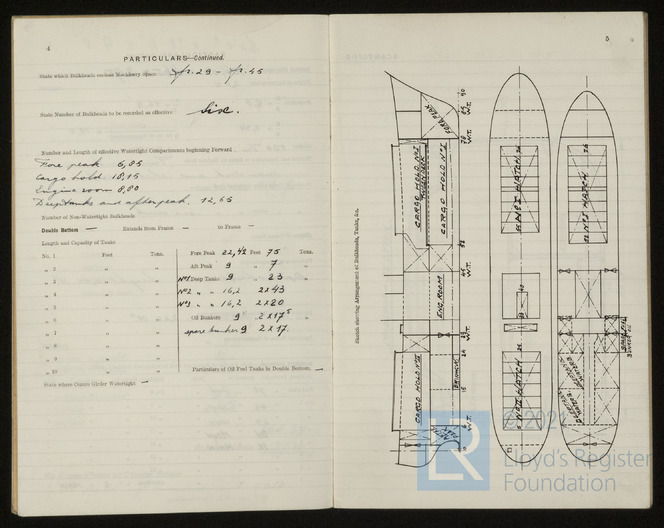 4
PARTICULARS—Continued.
State which Bulkheads enclose Machinery Space fr. 29 – fr. 45
State Number of Bulkheads to be recorded as effective Six.
Number and Length of effective Watertight Compartments beginning Forward
Fore peak 6,85
Cargo hold 18,15
Engine room 8,80
Deeptanks and afterpeak. 12,65
Number of Non-Watertight Bulkheads
Double Bottom — Extends from Frame — to Frame —
Length and Capacity of Tanks
No. 1 Feet Tons.
„ 2 „ „
„ 3 „ „
„ 4 „ „
„ 5 „ „
„ 6 „ „
„ 7 „ „
„ 8 „ „
„ 9 „ „
„ 10 „ „
Fore Peak 22,42 Feet 75 Tons.
Aft Peak 9 „ 7 „
No1 Deep Tanks 9 „ 23 „
No2 „ „ 16,2 2x43
No3 „ „ 16,2 2x20
Oil Bunkers 9 2x17,5
spare bunker 9 2x17.
Particulars of Oil Fuel Tanks in Double Bottom: —
State where Centre Girder Watertight —
5
Sketch shewing Arrangement of Bulkheads, Tanks, &c.
FORE PEAK
CARGO HOLD No I
CARGO HOLD No I
ENG. ROOM
CARGO HOLD No II
W.T.
W.T.
W.T.
W.T.
No I HATCH
No II HATCH
No I HATCH
© 2021
LR
Lloyd's Register
Foundation